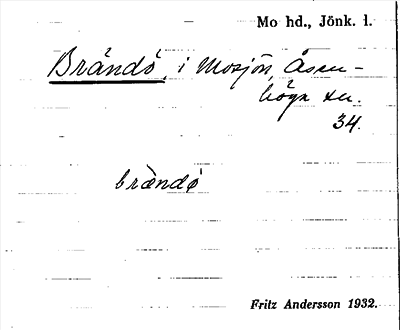 Mo hd., Jönk. l.
Brändö, i Mosjön, Åsen-
höga sn.
34.
brèndø
Fritz Andersson 1932.